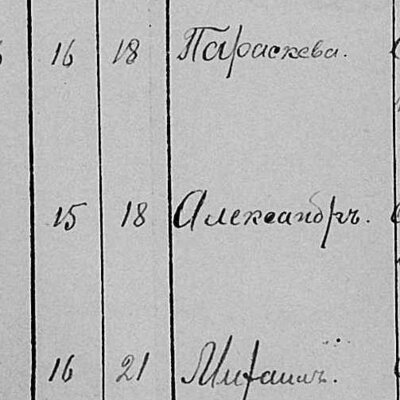 16 18 Параскева.
15 18 Александръ.
16 21 Михаилъ.